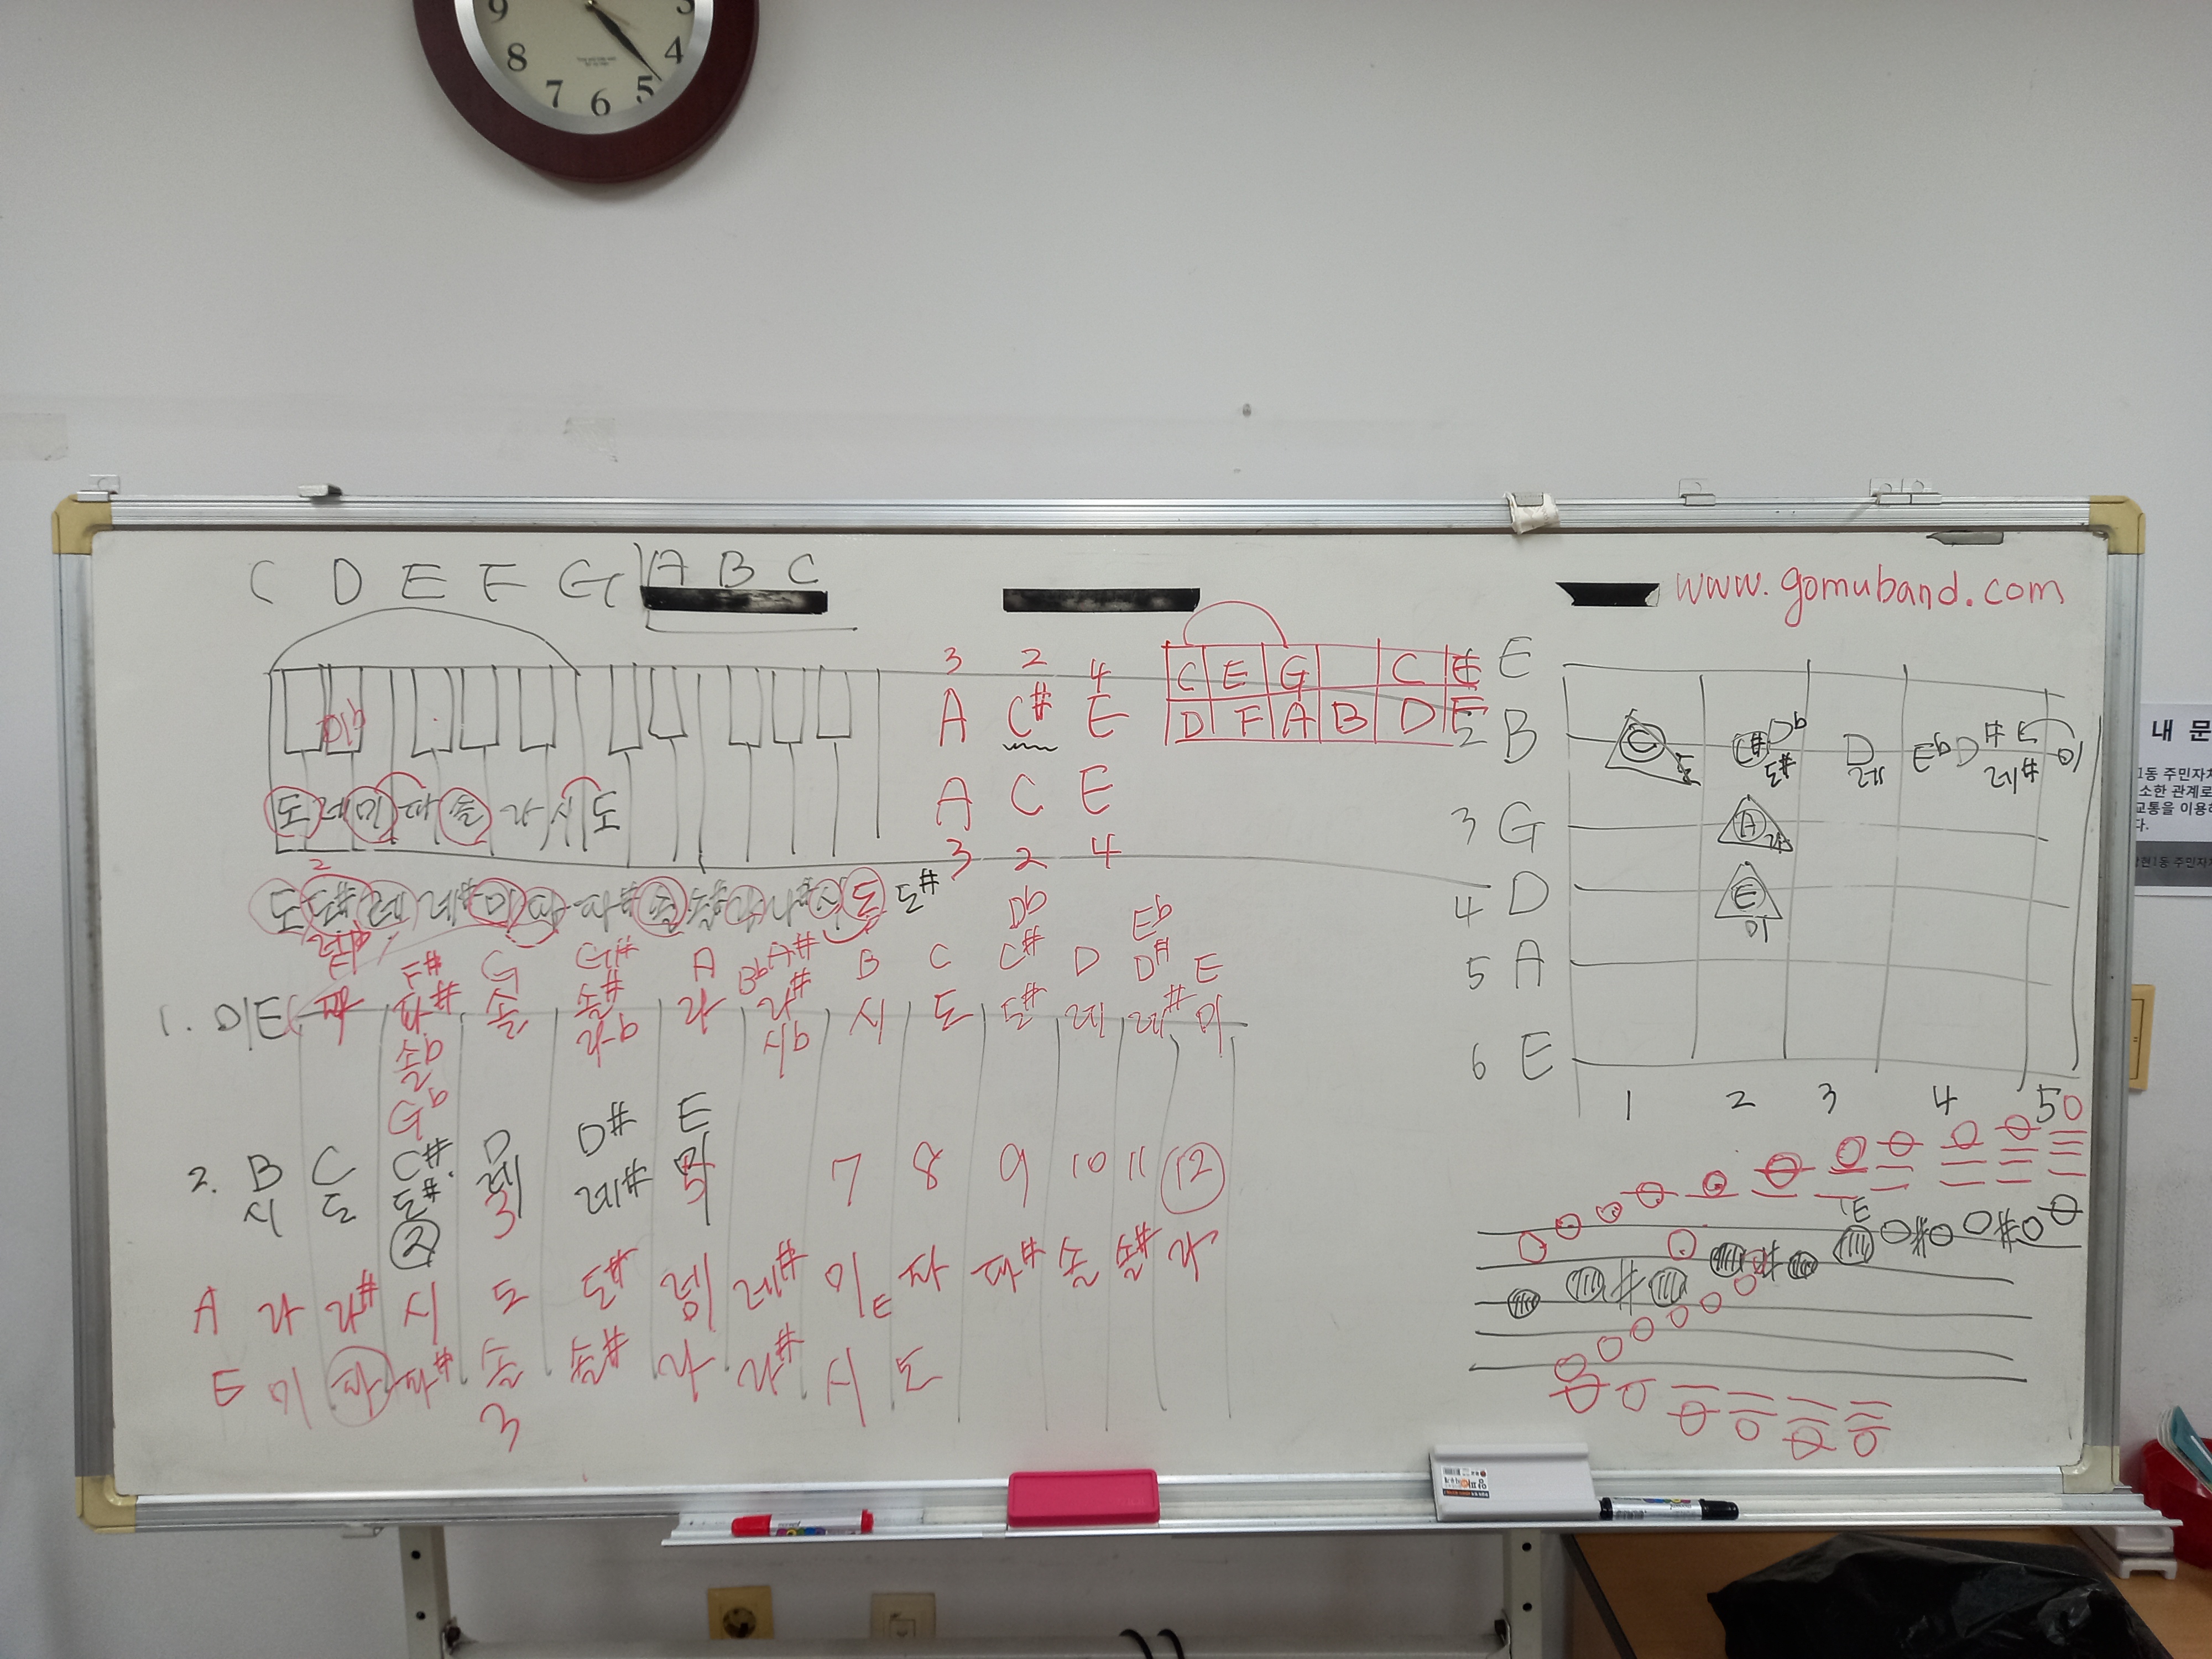 9 3
8 4
7 6 5
C D E F G A B C
www.gomuband.com
3 2 4
A C# E
A C E
3 2 4
C E G C E
D F A B D F
미b
도 레 미 파 솔 라 시 도
도 도# 레 레# 미 파 파# 솔 솔# 라 라# 시 도 도#
2
레b
F# G G# A Bb A# B C C# Db D D# Eb E
1. 미 E 파 파# 솔 솔# 라 라# 시 도 도# 레 레# 미
솔b 라b 시b
2
Gb
2. B C C# D D# E
시 도 도# 레 레# 미
2 3 5 7 8 9 10 11 12
A 라 라# 시 도 도# 레 레# 미 E 파 파# 솔 솔# 라
E 미 파 파# 솔 솔# 라 라# 시 도
3
E
2 B C C# Db D Eb D# E
도 도# 레 레# 미
3 G A
라
4 D E
미
5 A
6 E
1 2 3 4 5
E
내 문
1동 주민자치
소한 관계로
교통을 이용
다.